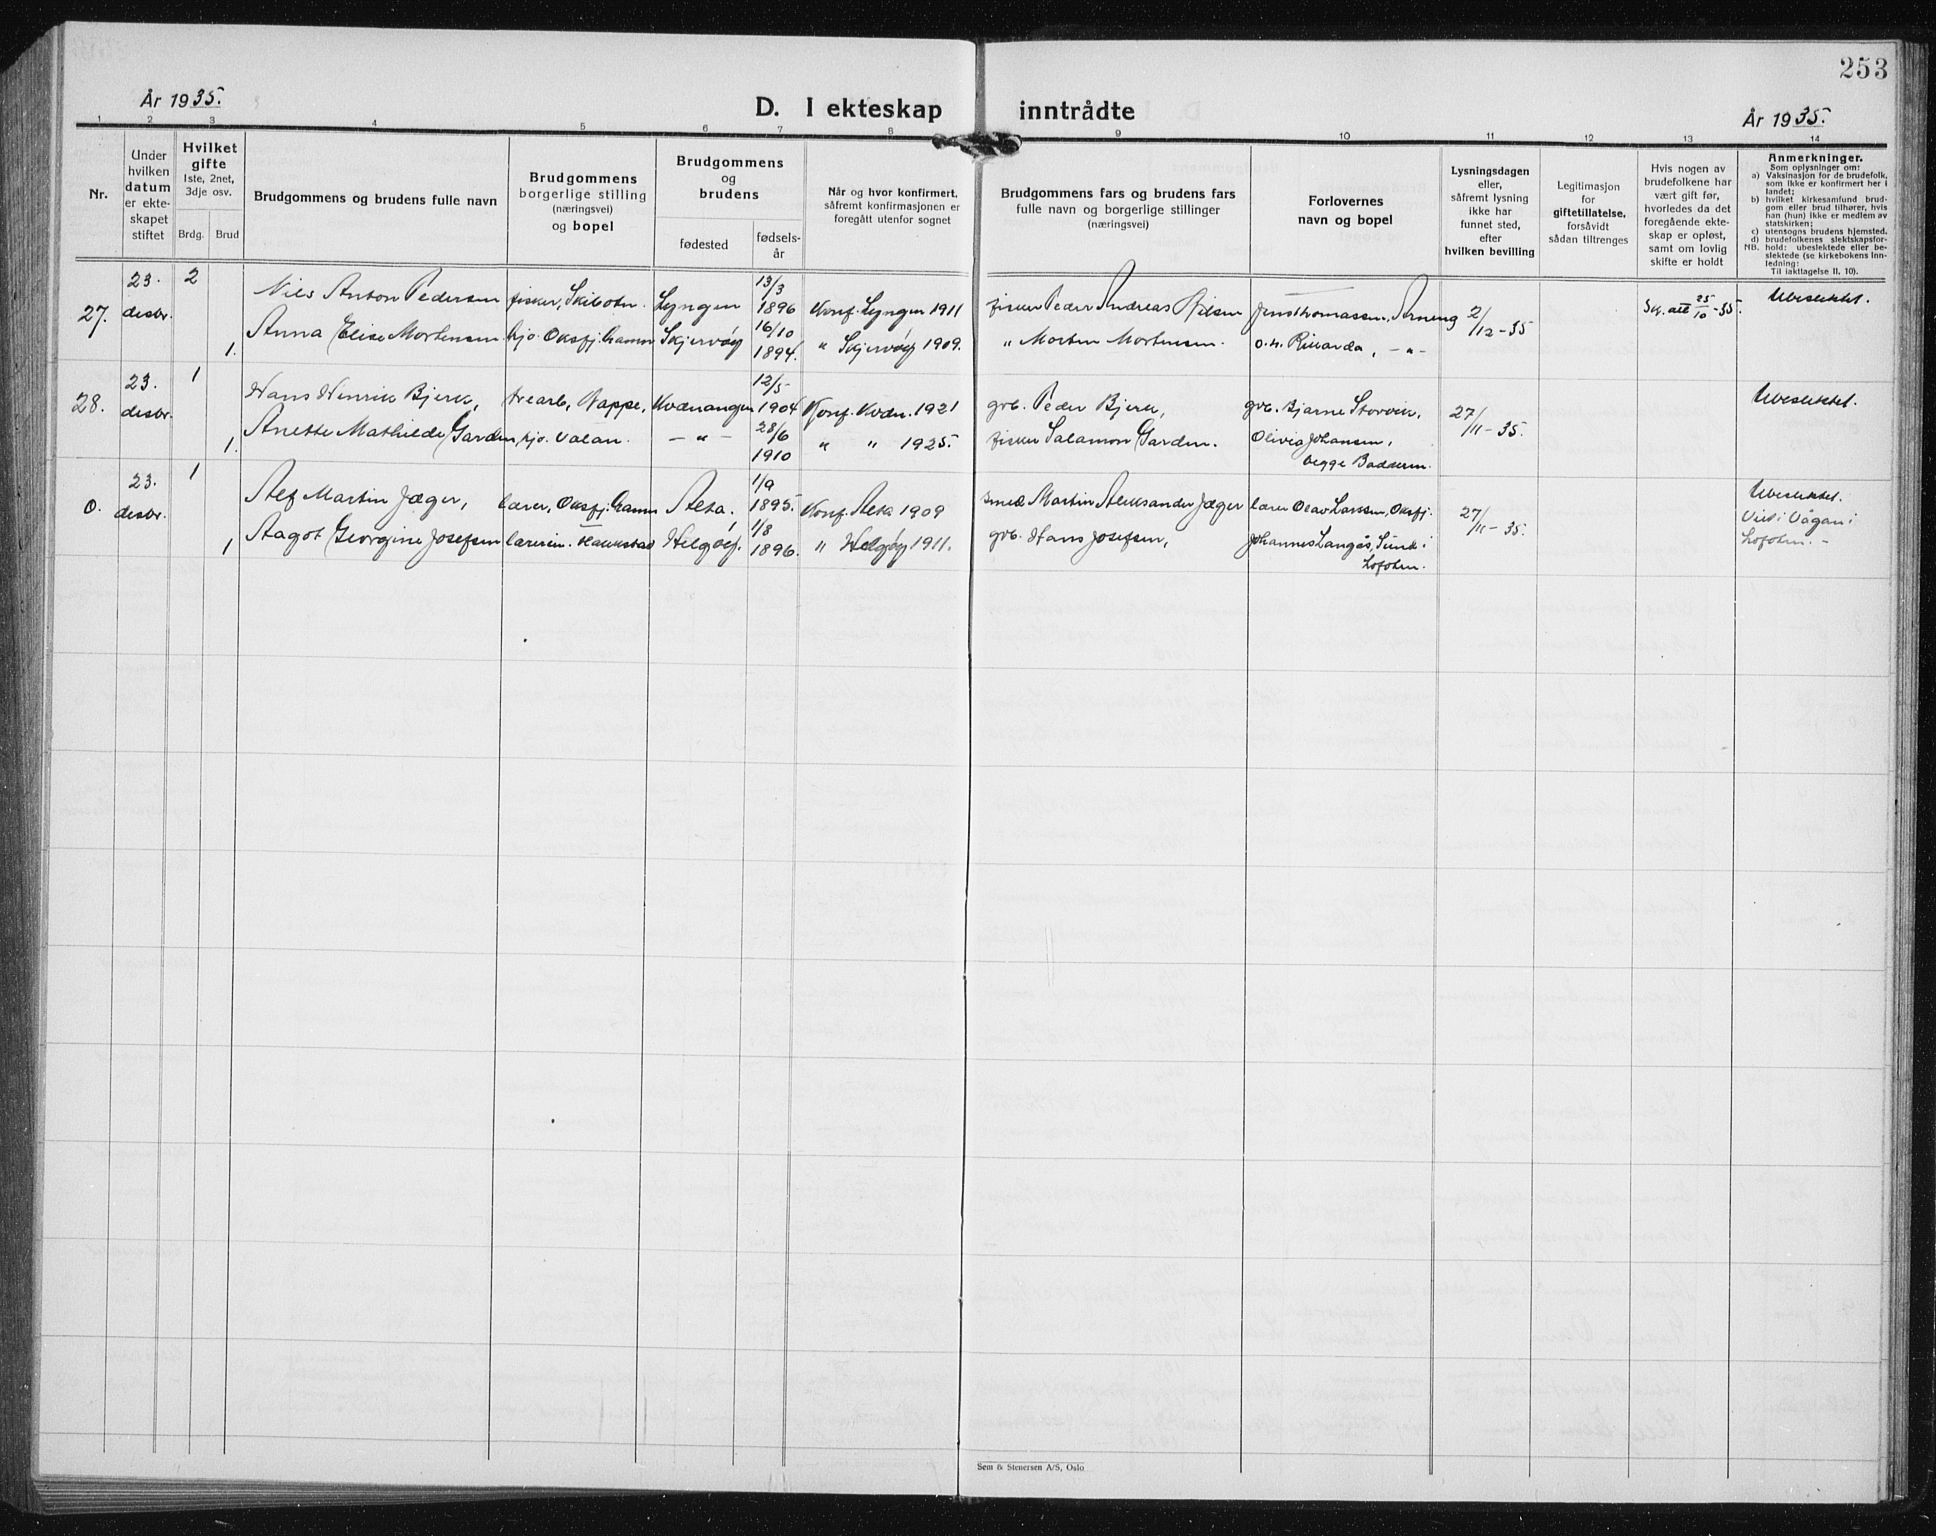 253
År 1935.
D. I ekteskap inntrådte
År 1935.
1 2 3 4 5 6 7 8 9 10 11 12 13 14
Nr.
Under
hvilken
datum
er ekte-
skapet
stiftet
Hvilket
gifte
1ste, 2net,
3dje osv.
Brdg. Brud
Brudgommens og brudens fulle navn
Brudgommens
borgerlige stilling
(næringsvei)
og bopel
Brudgommens
og
brudens
fødested
fødsels-
år
Når og hvor konfirmert.
såfremt konfirmasjonen er
foregått utenfor sognet
Brudgommens fars og brudens fars
fulle navn og borgerlige stillinger
(næringsvei)
Forlovernes
navn og bopel
Lysningsdagen
eller,
såfremt lysning
ikke har
funnet sted,
efter
hvilken bevilling
Legitimasjon
for
giftetillatelse,
forsåvidt
sådan tiltrenges
Hvis nogen av
brudefolkene har
vært gift før,
hvorledes da det
foregående ekte-
skap er opløst,
samt om lovlig
skifte er holdt
Anmerkninger.
Som oplysninger om:
a) Vaksinasjon for de brudefolk,
som ikke er konfirmert her i
landet;
b) hvilket kirkesamfund brud-
gom eller brud tilhører, hvis
han (hun) ikke er medlem av
statskirken;
c) utensogns brudens hjemsted.
d) brudefolkenes slektskapsfor-
NB. hold: ubeslektede eller be-
slektede (se kirkebokens inn-
ledning:
Til iakttagelse II. 10).
27. 23. desbr. 2 Nils Anton Pedersen fisker, Skibotn. Lyngen 13/3 1896 Konf. Lyngen 1911 fisker Peder Andreas Nilsen Jens Thomassen, Arneng 2/12-35 25/10-35. Ubeslektet.
1. Anna Elise Mortensen hjo. Oksfj. hamn Skjervøy 16/10 1894. " Skjervøy 1909. " Morten Mortensen. o. h. Rikarda, -"-
28. 23. desbr. 1 Hans Henrik Bjerk, trearb, Nappe, Kvænangen 12/5 1904 Konf. Kvæn. 1921 grb. Peder Bjerk, grb. Bjarne Storvik, 27/11-35. Ubeslektet.
1. Anette Mathilde Garden, hjo. Valan. -"- 28/6 1910 " " 1925. fisker Salamon Garden. Olivia Johansen,
begge Badderen.
0. 23. desbr. 1 Alf Martin Jæger, lærer, Oksfj. hamn Alta. 1/9 1895. Konf. Alta 1909 smed Martin Aleksander Jæger lærer Olav Larssen, Oksfj. 27/11-35. Ubeslektet.
1 Aagot Georgine Josefsen lærerin. Haukstad Helgøy. 1/8 1896. " Helgøy 1911. grb. Hans Josefsen, Johannes Langås, Sund i
Lofoten.
Viet i Vågan i
Lofoten. -
Sem & Stenersen A/S, Oslo